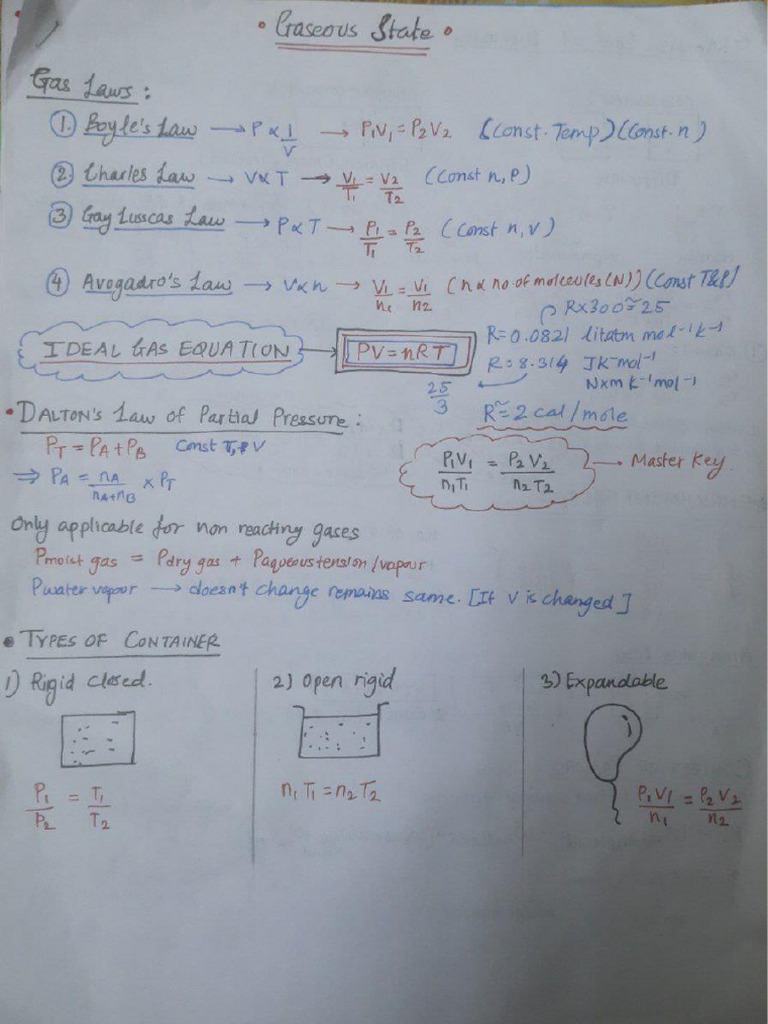 • Gaseous State •
Gas Laws:
① Boyle's Law → P ∝ 1/V → P₁V₁ = P₂V₂ (Const. Temp) (Const. n)
② Charles Law → V ∝ T → V₁/T₁ = V₂/T₂ (Const n, P)
③ Gay Lusscas Law → P ∝ T → P₁/T₁ = P₂/T₂ (Const n, V)
④ Avogadro's Law → V ∝ n → V₁/n₁ = V₁/n₂ (n ∝ no. of molecules (N)) (Const T&P)
R×300 ≈ 25
IDEAL GAS EQUATION → PV = nRT
R = 0.0821 lit atm mol⁻¹ k⁻¹
R = 8.314 J K⁻ mol⁻¹
N×m k⁻¹ mol⁻¹
25/3
R ≈ 2 cal/mole
• DALTON'S Law of Partial Pressure:
P_T = P_A + P_B Const T, & V
⇒ P_A = n_A/n_A+n_B × P_T
P₁V₁/n₁T₁ = P₂V₂/n₂T₂ → Master Key
Only applicable for non reacting gases
Pmoist gas = Pdry gas + Paqueous tension/vapour
Pwater vapour → doesn't change remains same. [If V is changed]
• TYPES OF CONTAINER
1) Rigid closed.
2) Open rigid
3) Expandable
P₁/P₂ = T₁/T₂
n₁T₁ = n₂T₂
P₁V₁/n₁ = P₂V₂/n₂